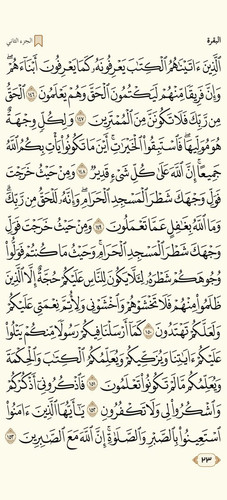 البقرة الجزء الثاني
الَّذِينَ ءَاتَيْنَٰهُمُ الْكِتَٰبَ يَعْرِفُونَهُۥ كَمَا يَعْرِفُونَ أَبْنَآءَهُمْ ۖ
وَإِنَّ فَرِيقًا مِّنْهُمْ لَيَكْتُمُونَ الْحَقَّ وَهُمْ يَعْلَمُونَ ١٤٦ الْحَقُّ
مِن رَّبِّكَ فَلَا تَكُونَنَّ مِنَ الْمُمْتَرِينَ ١٤٧ وَلِكُلٍّ وِجْهَةٌ
هُوَ مُوَلِّيهَا ۖ فَاسْتَبِقُوا۟ الْخَيْرَٰتِ ۚ أَيْنَ مَا تَكُونُوا۟ يَأْتِ بِكُمُ اللَّهُ
جَمِيعًا ۚ إِنَّ اللَّهَ عَلَىٰ كُلِّ شَىْءٍ قَدِيرٌ ١٤٨ وَمِنْ حَيْثُ خَرَجْتَ
فَوَلِّ وَجْهَكَ شَطْرَ الْمَسْجِدِ الْحَرَامِ ۖ وَإِنَّهُۥ لَلْحَقُّ مِن رَّبِّكَ ۗ
وَمَا اللَّهُ بِغَٰفِلٍ عَمَّا تَعْمَلُونَ ١٤٩ وَمِنْ حَيْثُ خَرَجْتَ فَوَلِّ
وَجْهَكَ شَطْرَ الْمَسْجِدِ الْحَرَامِ ۚ وَحَيْثُ مَا كُنتُمْ فَوَلُّوا۟
وُجُوهَكُمْ شَطْرَهُۥ لِئَلَّا يَكُونَ لِلنَّاسِ عَلَيْكُمْ حُجَّةٌ إِلَّا الَّذِينَ
ظَلَمُوا۟ مِنْهُمْ فَلَا تَخْشَوْهُمْ وَاخْشَوْنِى وَلِأُتِمَّ نِعْمَتِى عَلَيْكُمْ
وَلَعَلَّكُمْ تَهْتَدُونَ ١٥٠ كَمَآ أَرْسَلْنَا فِيكُمْ رَسُولًا مِّنكُمْ يَتْلُوا۟
عَلَيْكُمْ ءَايَٰتِنَا وَيُزَكِّيكُمْ وَيُعَلِّمُكُمُ الْكِتَٰبَ وَالْحِكْمَةَ
وَيُعَلِّمُكُم مَّا لَمْ تَكُونُوا۟ تَعْلَمُونَ ١٥١ فَاذْكُرُونِىٓ أَذْكُرْكُمْ
وَاشْكُرُوا۟ لِى وَلَا تَكْفُرُونِ ١٥٢ يَٰٓأَيُّهَا الَّذِينَ ءَامَنُوا۟
اسْتَعِينُوا۟ بِالصَّبْرِ وَالصَّلَوٰةِ ۚ إِنَّ اللَّهَ مَعَ الصَّٰبِرِينَ ١٥٣
٢٣